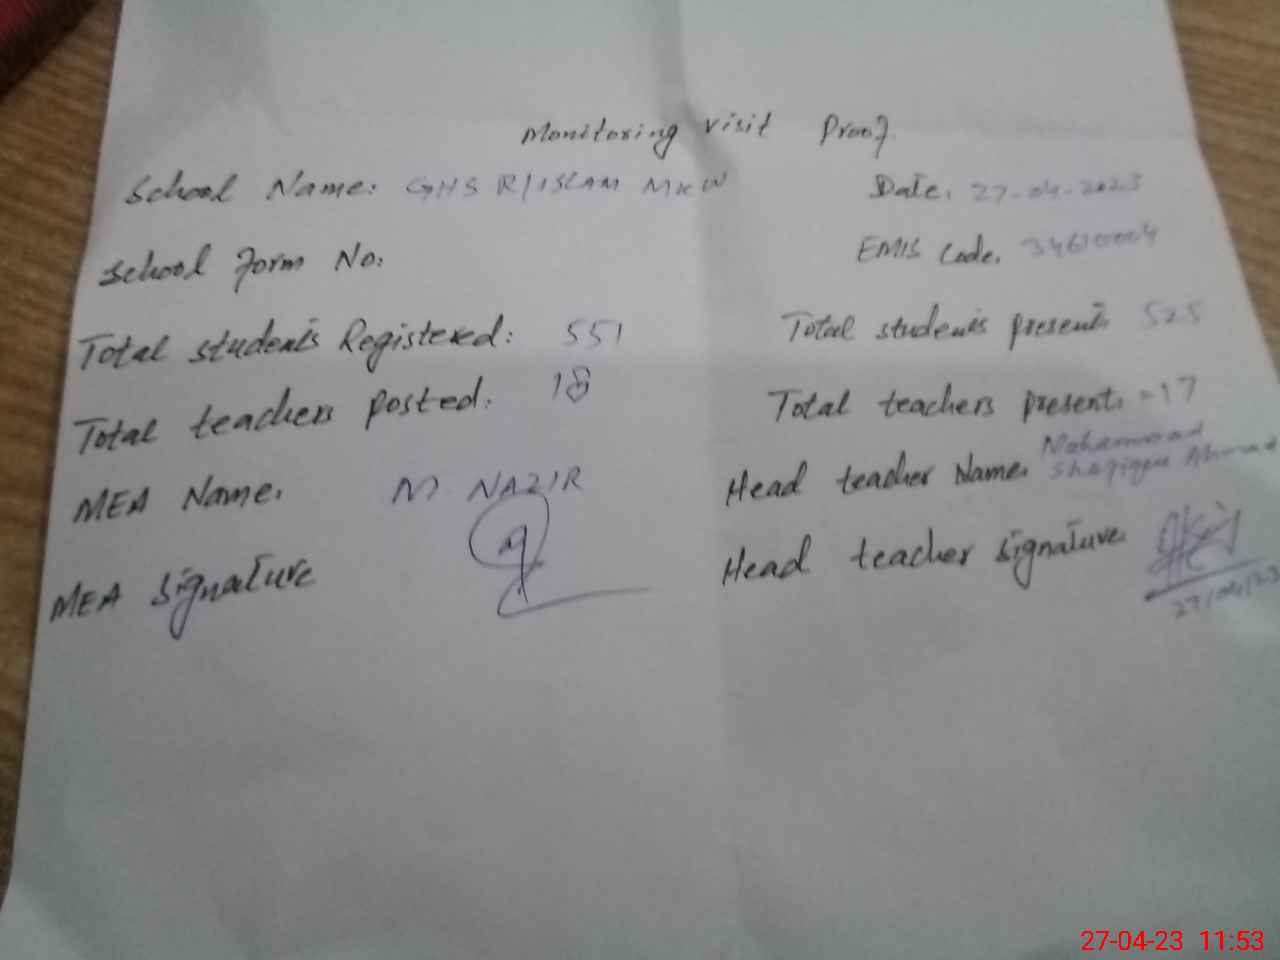 Monitoring visit Proof
School Name: GHS R/ISLAM MKW Date. 27-04-2023
School Form No: EMIS Code. 34610004
Total students Registered: 551 Total students present. 525
Total teachers posted. 18 Total teachers present. 17
MEA Name. M NAZIR Head teacher Name. Mohammad
Shafique Ahmad
MEA Signature Head teacher signature.
27/04/23
27-04-23 11:53